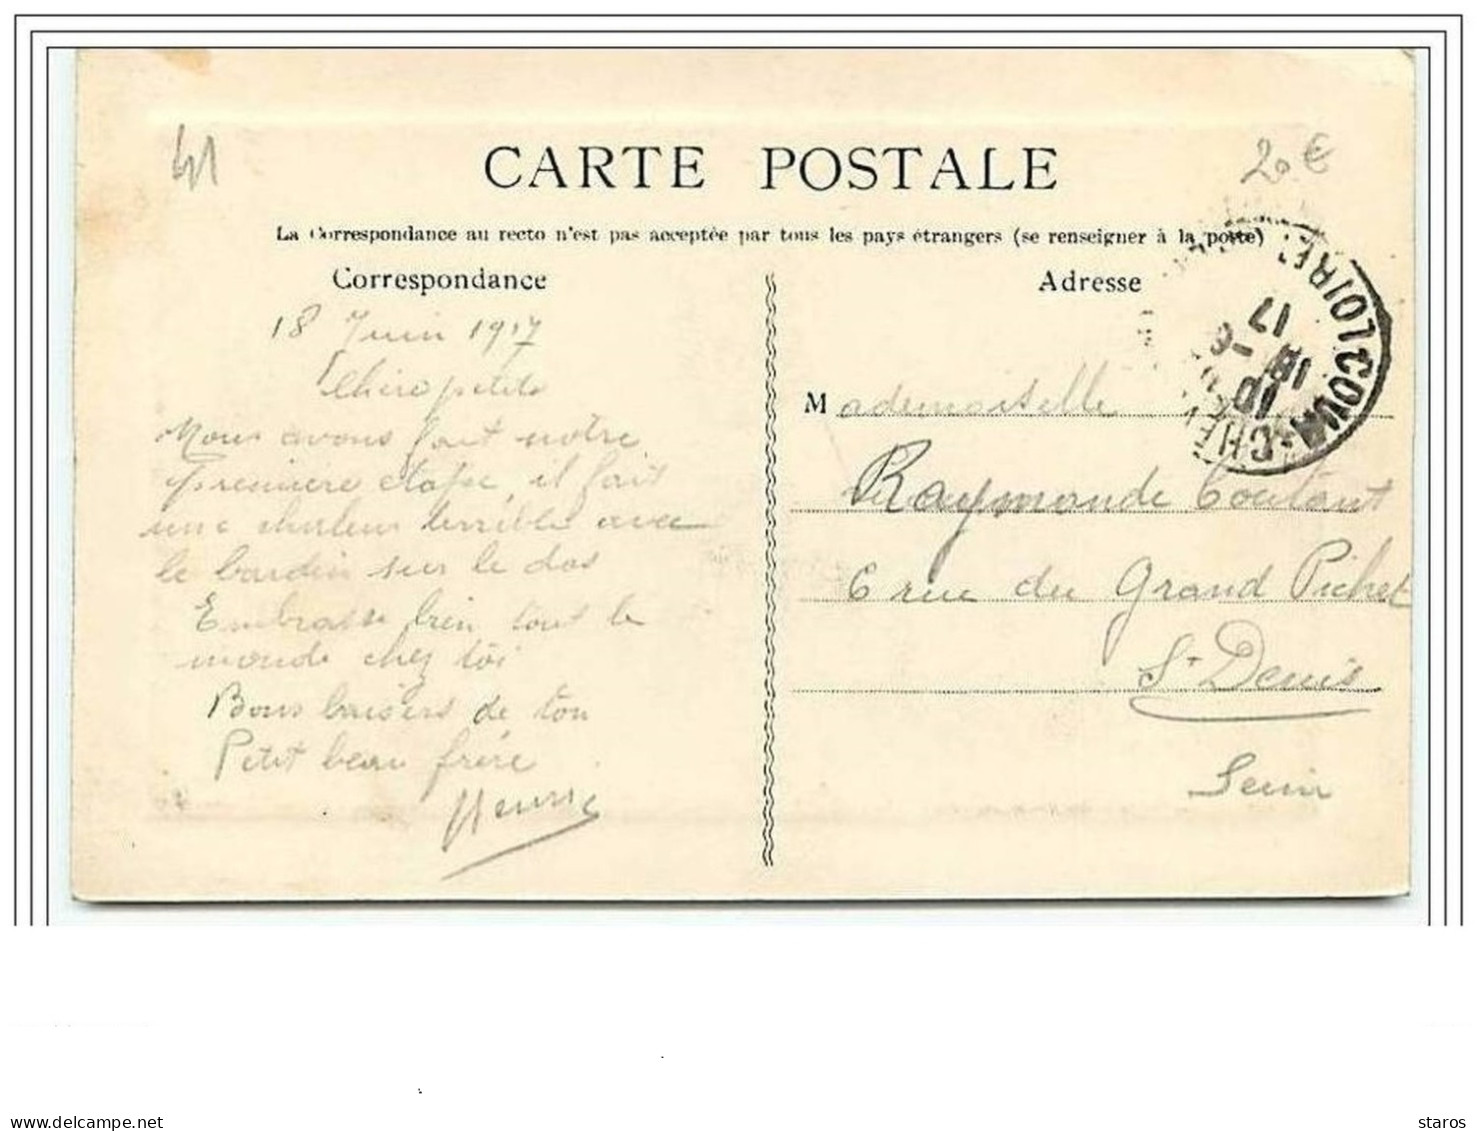 41
20 €
CARTE POSTALE
La Correspondance au recto n'est pas acceptée par tous les pays étrangers (se renseigner à la poste)
Correspondance
18 Juin 1917
Nous avons fait notre
première étape, il fait
une chaleur terrible avec
le bardin sur le dos
Embrasse bien tout le
monde chez toi
Bons baisers de ton
Petit beau frère
Adresse
Mademoiselle
Raymonde Coutant
6 rue du Grand Pichet
St Denis
Seine
LOIR-&-CHER
17
delcampe.net
staros